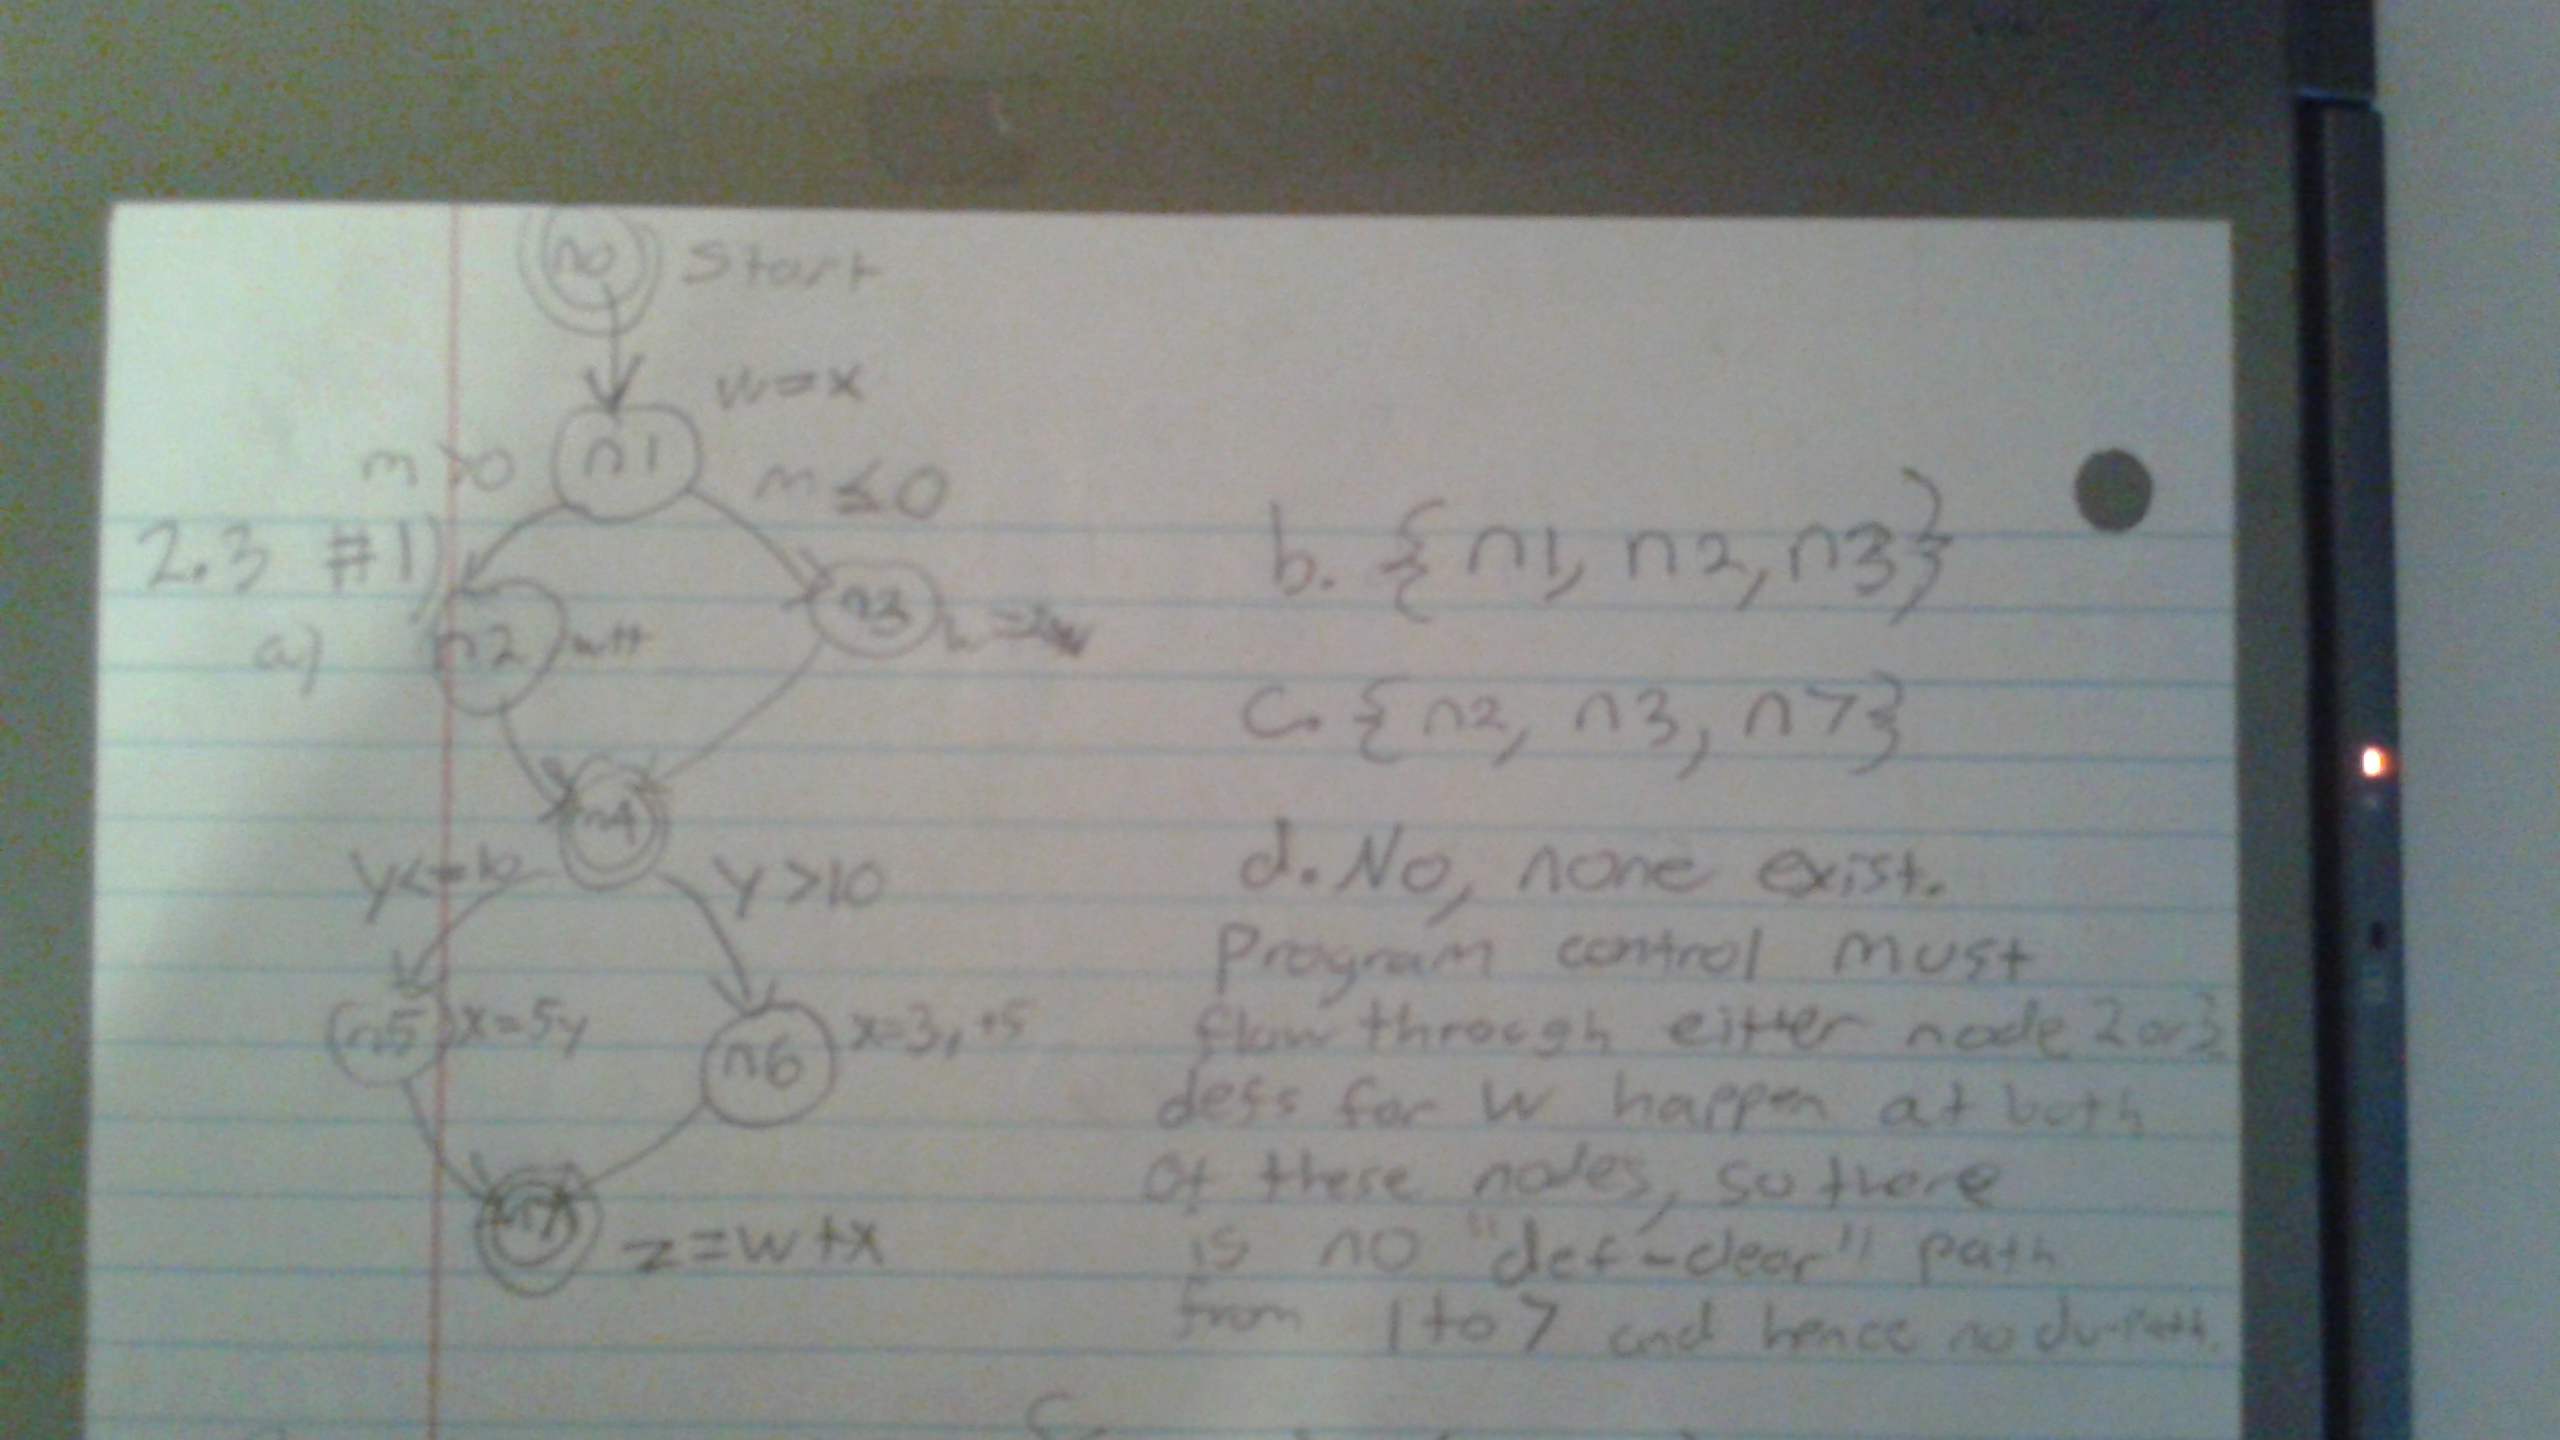 n0 Start
w=x
n1
m>0
m≤0
2.3 #1)
a)
n2 w++
n3 w=2w
n4
y<=10
y>10
n5 x=5y
n6 x=3y+5
n7
z=w+x
b. {n1, n2, n3}
c. {n2, n3, n7}
d. No, none exist.
Program control must
flow through either node 2 or 3
defs for w happen at both
of these nodes, so there
is no "def-clear" path
from 1 to 7 and hence no dupath.